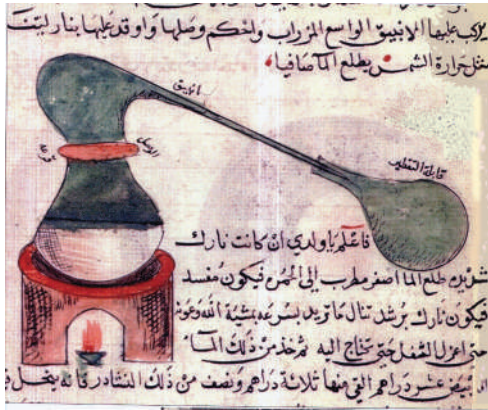 يركب عليها الانبيق الواسع المزراب وليحكم وصلها واوقد عليها بنار لينة
مثل حرارة الشمس يطلع الما صافيا
انبيق
قابلة التقطير
فاعلم ياولدي ان كانت نارك
طلع الما اصفر مطرب الى الحمر فيكون مفسد
فيكون نارك برشد تنال ما تريد بسرعه بمشية الله وعونه
حتى اعزل الثفل حتى تحتاج اليه ثم خذ من ذلك الماء
عشر دراهم القي منها ثلاثة دراهم ونصف من ذلك النشادر فانه ينحل